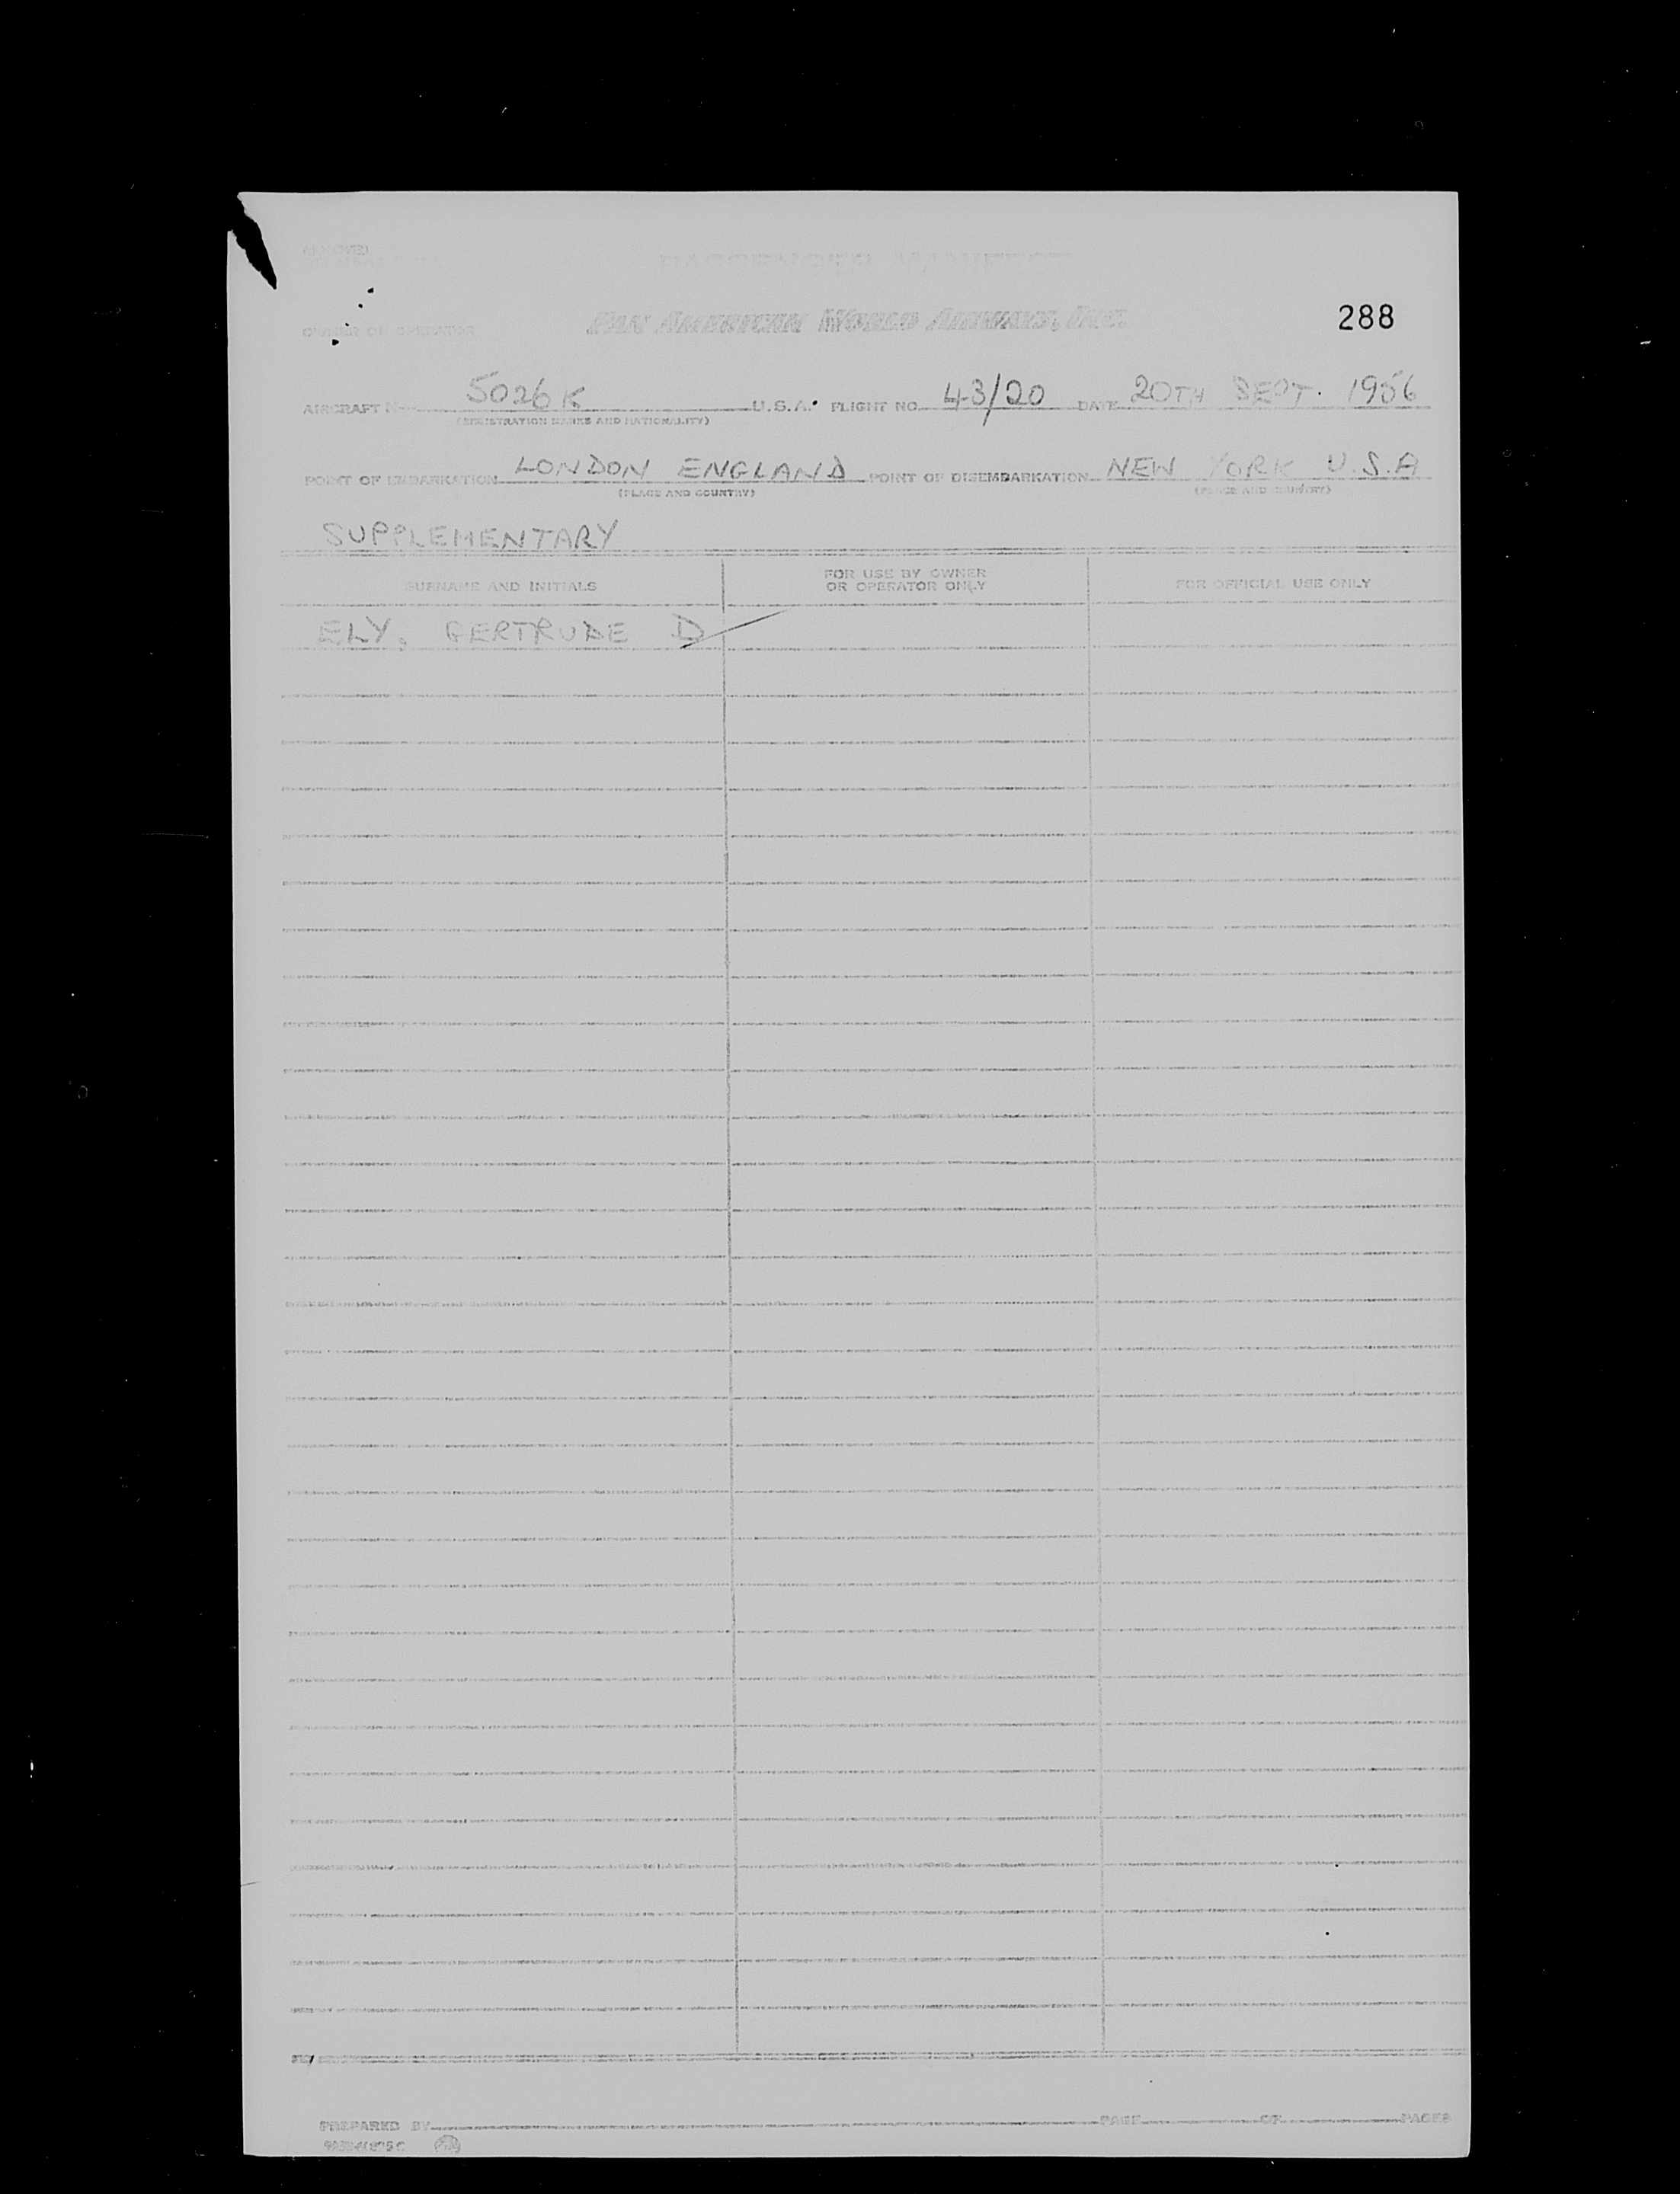 PASSENGER MANIFEST
OWNER OR OPERATOR PAN AMERICAN WORLD AIRWAYS, INC. 288
AIRCRAFT N 5026K U.S.A. FLIGHT NO. 43/20 DATE 20TH SEPT. 1956
(REGISTRATION MARKS AND NATIONALITY)
POINT OF EMBARKATION LONDON ENGLAND POINT OF DISEMBARKATION NEW YORK U.S.A
(PLACE AND COUNTRY) (PLACE AND COUNTRY)
SUPPLEMENTARY
SURNAME AND INITIALS FOR USE BY OWNER OR OPERATOR ONLY FOR OFFICIAL USE ONLY
ELY, GERTRUDE D
PREPARED BY PAGE OF PAGES